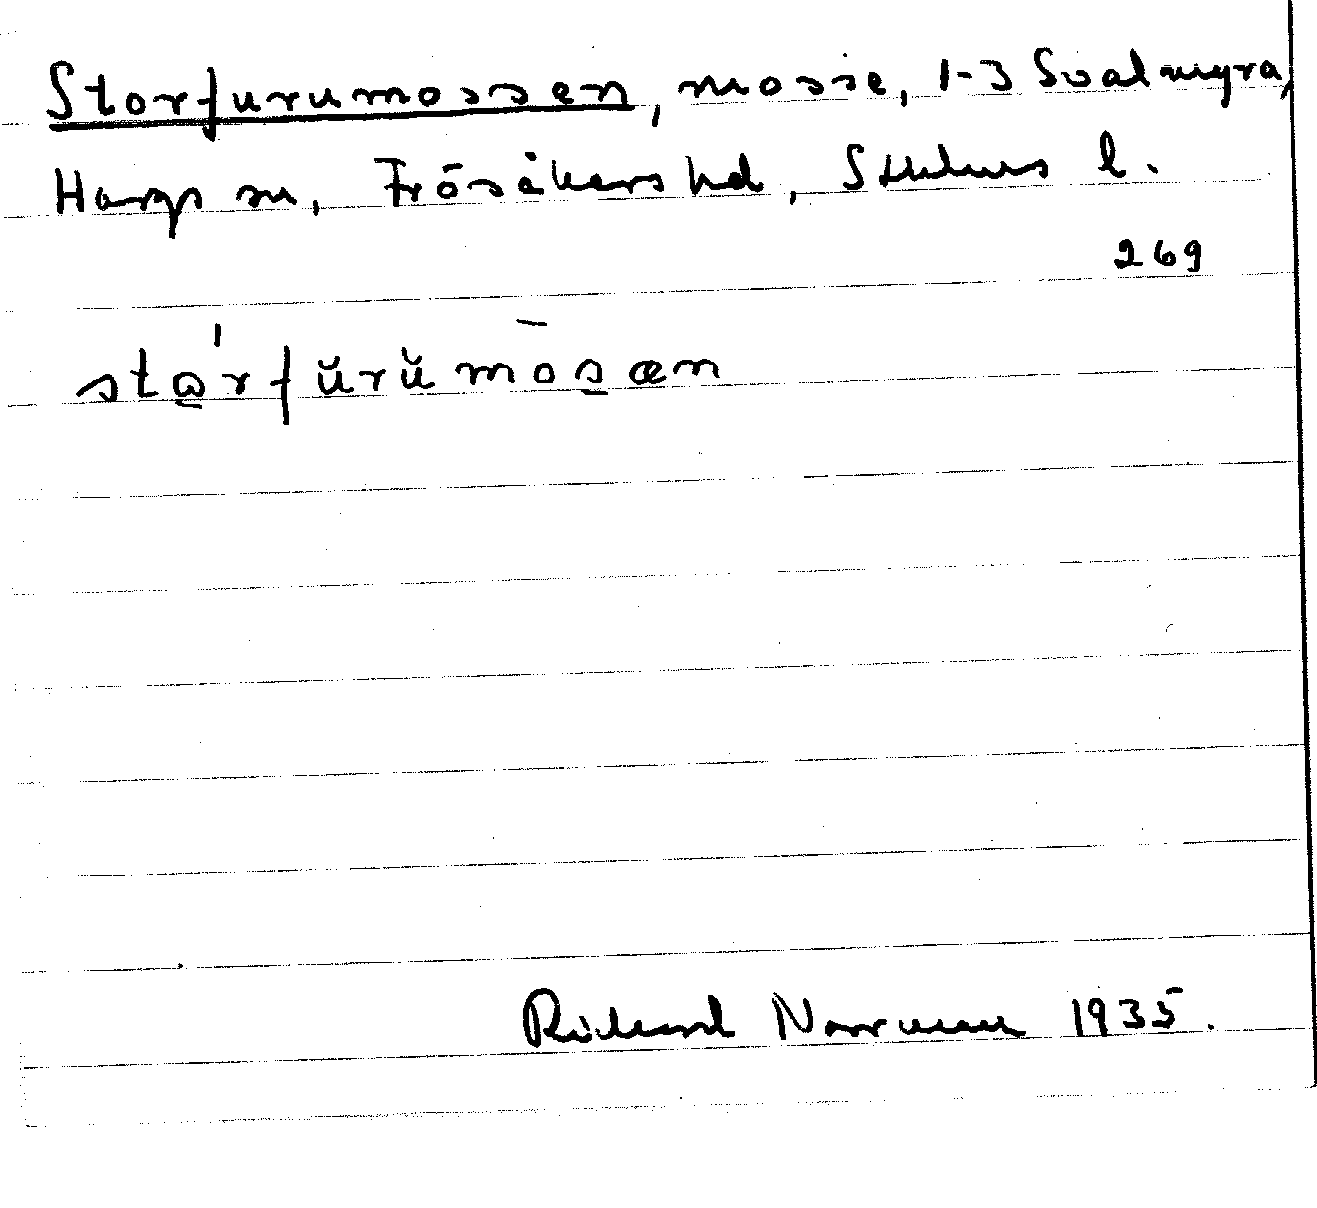 Storfurumossen, mosse, 1-3 Svalmyra,
Hargs sn, Frösåkers hd, Sthlms l.
269
stα̱'rfŭrŭmos̱æn
Rickard Norrman 1935.